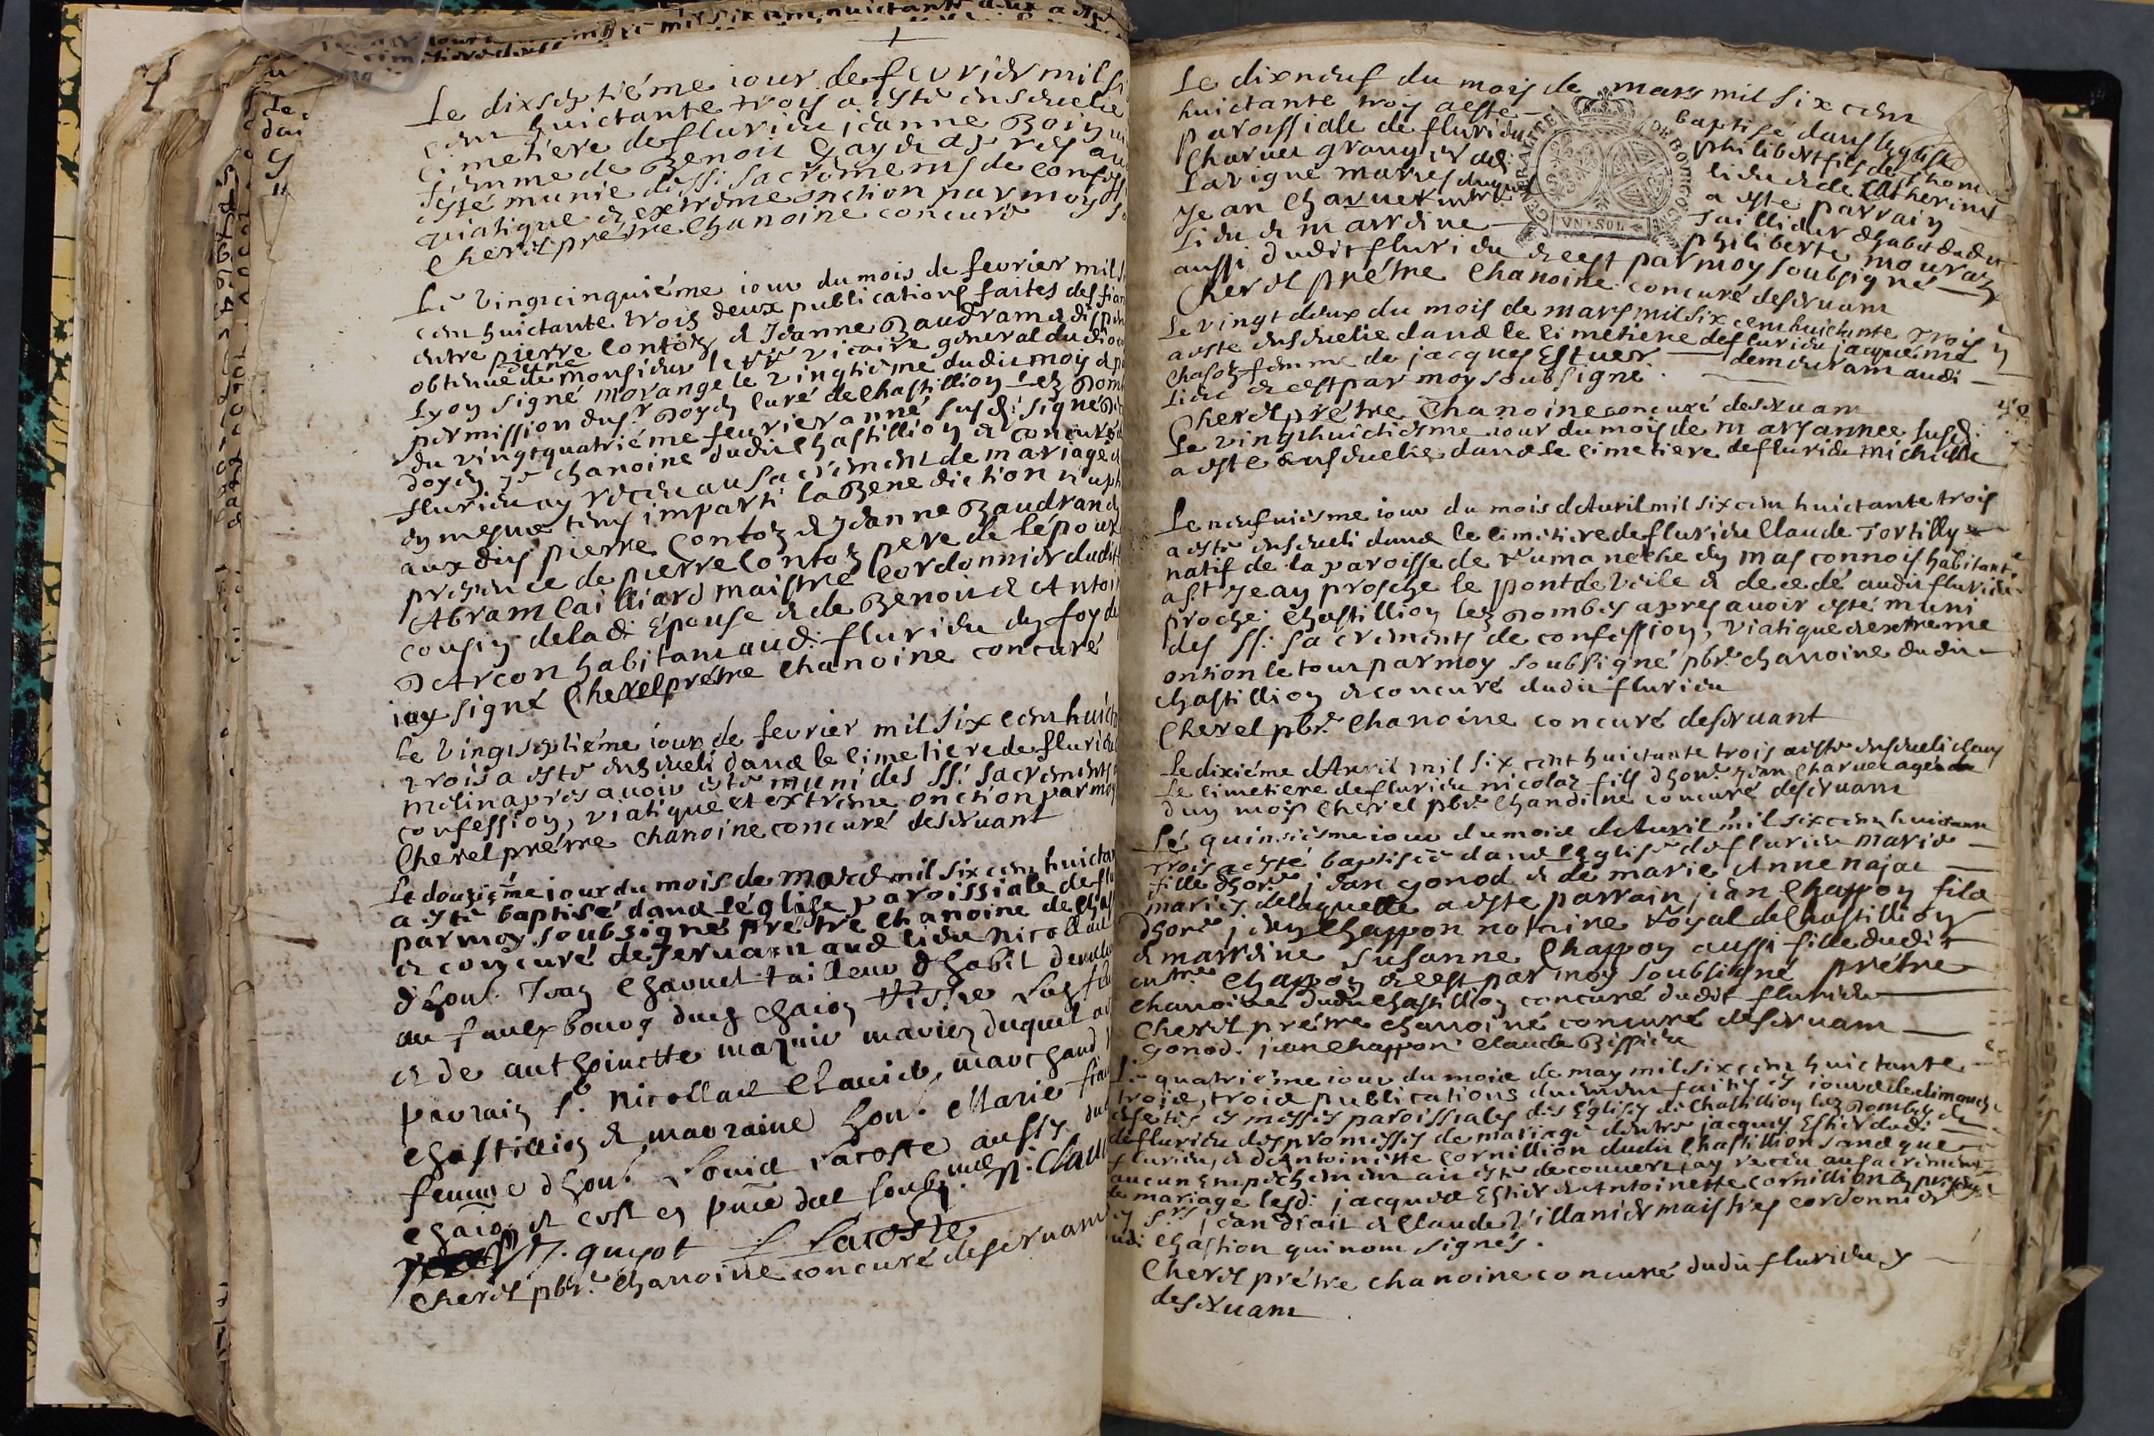 Le dixseptiéme iour de feurier mil si
cent huictante trois a esté enseuelie
cimetiere de flurieu jeanne Boiss
femme de Benoit Gay
esté munie des ss. sacrements de confess
viatique et extreme onction par moy so
Cherel prétre Chanoine concuré
Le vingtcinquiéme iour du mois de feurier mil s
cent huictante trois deux publications faites des fian
entre pierre Contoz et Jeanne Baudrand et dispen
obtenue de Monsieur le vicaire general du dio
Lyon signé morange le vingtiéme dudit mois et p
permission du sr Doyen curé de Chastillion lez Domb
du vingtquatriéme feurier anné susd. signé
doyen chanoine dudit Chastillion et concuré d
flurieu ay receu au sacrement de mariage et
en mesme tems imparti la Benediction nupti
auxdits pierre Contoz et Jeanne Baudrand
presence de pierre Contoz pere de lépoux
Abram Cailliard maistre Cordonnier dudit
cousin de lad. Epouse et de Benoit et Antoi
DArcon habitans aud. flurieu en foy de
iay signé Cherel prétre Chanoine concuré
Le vingtseptiéme iour de feurier mil six cent huict
trois a esté enseueli dans le cimetiere de flurieu
melin apres auoir esté muni des ss. sacrements
confession, viatique et extreme onction par moy
Cherel prétre chanoine concuré deseruant
Le douziéme jour du mois de mars mil six cent huictan
a esté baptisé dans léglise paroissiale de flu
par moy soubsigné prétre chanoine de Chas
et concuré deseruant aud lieu Nicollas
dhon. Jean Charuet tailleur dhabit demeu
au fauxbourg dud chaon
et de anthoinette mariez duquel a
parrain s. Nicollas Clauier, marchand
Chastillion et marraine hon. Marie fran
femme dhon. Louis Lacoste aussy dud
N. guyot L Lacoste
Cherel pbr. Chanoine concuré deseruant
Le dixneuf du mois de mars mil six cent
huictante troy a esté baptisé dans leglise
paroissiale de flurieu philibert fils dhon
Charuet granger
Lavigne mariés duquel a esté parrain
Jean Charuet Taillieur dhabit dudit
Lieu et marrine philiberte mouraz
aussi dudit flurieu et est par moy soubsigné
Cherel prétre Chanoine concuré deseruant
Le vingt deux du mois de mars mil six cent huictante trois
a esté enseuelie dans le cimetiere de flurieu jacqueme
Chasoz femme de jacques Estuer demeurant audi
Lieu et est par moy soubsigné.
Cherel prétre Chanoine concuré deseruant
Le vingthuictiesme iour du mois de mars annee susd.
a esté enseuelie dans le cimetiere de flurieu michelle
Le neufuiesme iour du mois dAuril mil six cent huictante trois
a esté enseueli dans le cimetiere de flurieu Claude Tortilly
natif de la paroisse de rumaneche en masconnois habitant
a st Jean prosche le pont de veile et decedé audit flurieu
proche Chastillion lez Dombes apres auoir esté muni
des ss. sacrements de confession, viatique et extreme
onction le tout par moy soubsigné pbr. chanoine dudit
Chastillion et concuré dudit flurieu
Cherel pbr. Chanoine concuré deseruant
Le dixiéme dAuril mil six cent huictante trois a esté enseueli dans
Le cimetiere de flurieu nicolas fils dhon. Jean Charuet agé de
dun mois Cherel pbr. Chanoine concuré deseruant
Le quinsiesme iour du mois dAuril mil six cent huictante
trois a esté baptisée dans leglise de flurieu marie
fille dhon. jean gonod et de marie Anne najac
mariés, de laquelle a esté parrain jean Chappon fils
dhon. jean Chappon notaire Royal de Chastillion
et marrine Susanne Chappon aussi fille dudit
Chappon et est par moy soubsigné prétre
chanoine dudit Chastillion concuré dudit flurieu
Cherel prétre chanoine concuré deseruant
gonod. jean Chappon Claude Bissieu
Le quatriéme iour du mois de may mil six cent huictante
trois, trois publications duement faites es iours de dimanch
et festes es messes paroissiales des Eglises de Chastillion lez Dombes et
de flurieu des promesses de mariage dentre jacques Estier dudi
flurieu, et dAntoinette Cornillion dudit Chastillion sans que
aucun Empechement ait esté decouuert, ay receu au sacrement
de mariage lesd. jacques Estier et Antoinette Cornillion en presence
jean Drait et Claude Villanier maistres cordonnier
udi Chastion qui nont signés.
Cherel prétre chanoine concuré dudit flurieu y
deseruant
GENERALITE DE BOURGOGNE
VN SOL